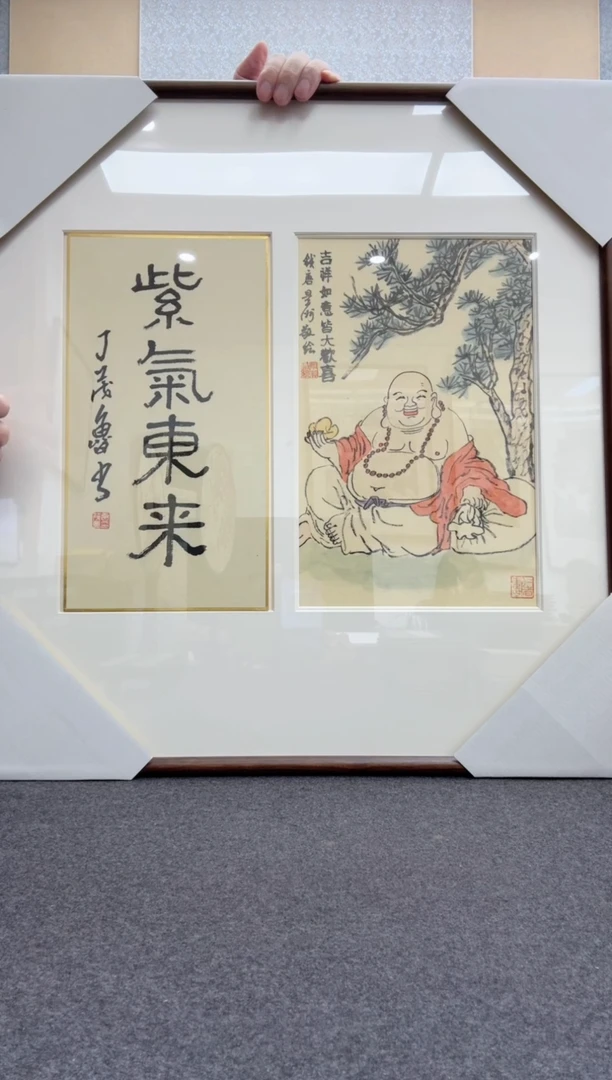 紫氣東来
丁茂魯书
吉祥如意皆大歡喜
钱唐 敬绘